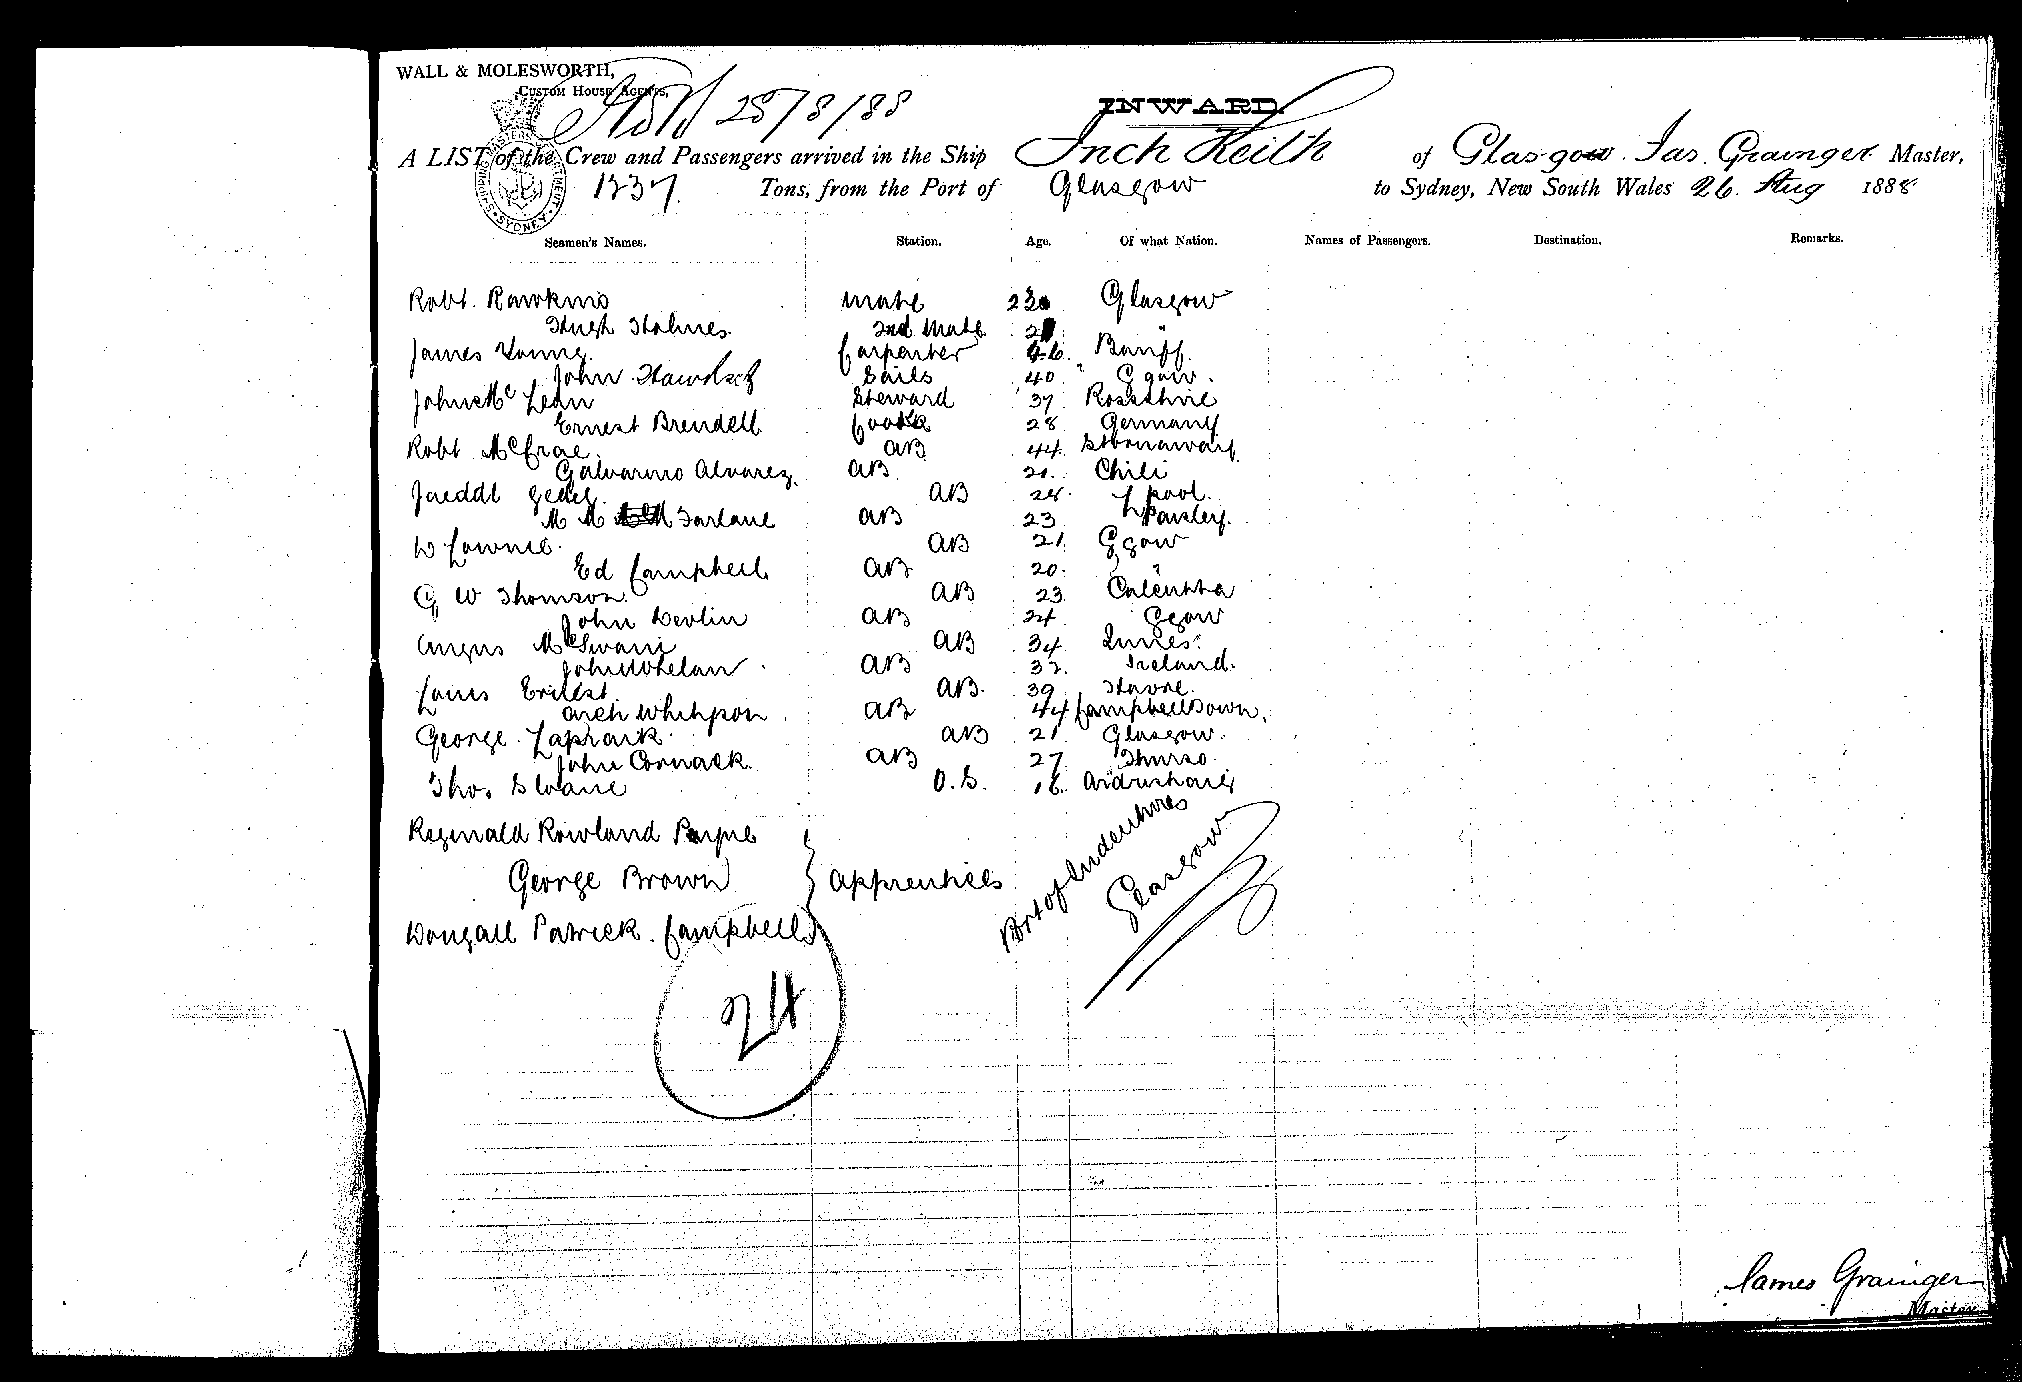 WALL & MOLESWORTH,
CUSTOM HOUSE AGENTS,
28/8/88
INWARD.
A LIST of the Crew and Passengers arrived in the Ship Inch Keith of Glasgow Jas. Grainger Master,
1237 Tons, from the Port of Glasgow to Sydney, New South Wales 26. Aug 1888
SYDNEY
Seamen's Names. Station. Age. Of what Nation. Names of Passengers. Destination. Remarks.
Robt. Rawkins Mate Glasgow
Hugh Holmes 2nd Mate "
James Young Carpenter 46. Banff.
John Sails 40 Ggow.
John Mc Lean Steward 37 Rossshire
Ernest Brendell Cook 28 Germany
Robt McCrae AB 44 Stornaway
Galvarino Alvarez AB 21. Chili
AB 24. Lpool.
M M Farlane AB 23 Paisley.
W Cownie AB 21. Ggow
Ed Campbell AB 20. "
G W Thomson AB 23 Calcutta
John Devlin AB 24 Ggow
Angus McSwain AB 34
John Whelan AB 32. Ireland.
Louis AB. 39 Havre.
Arch Whitepon AB 44 Campbelltown.
George Lapraik AB 21 Glasgow.
John Cormack AB 27 Thurso.
Thos Sloane O.S. 16. Ardrishaig
Reginald Rowland Payne
George Brown } Apprentices
Dougall Patrick Campbell
Prt of Indentures
Glasgow
24
James Grainger
Master.